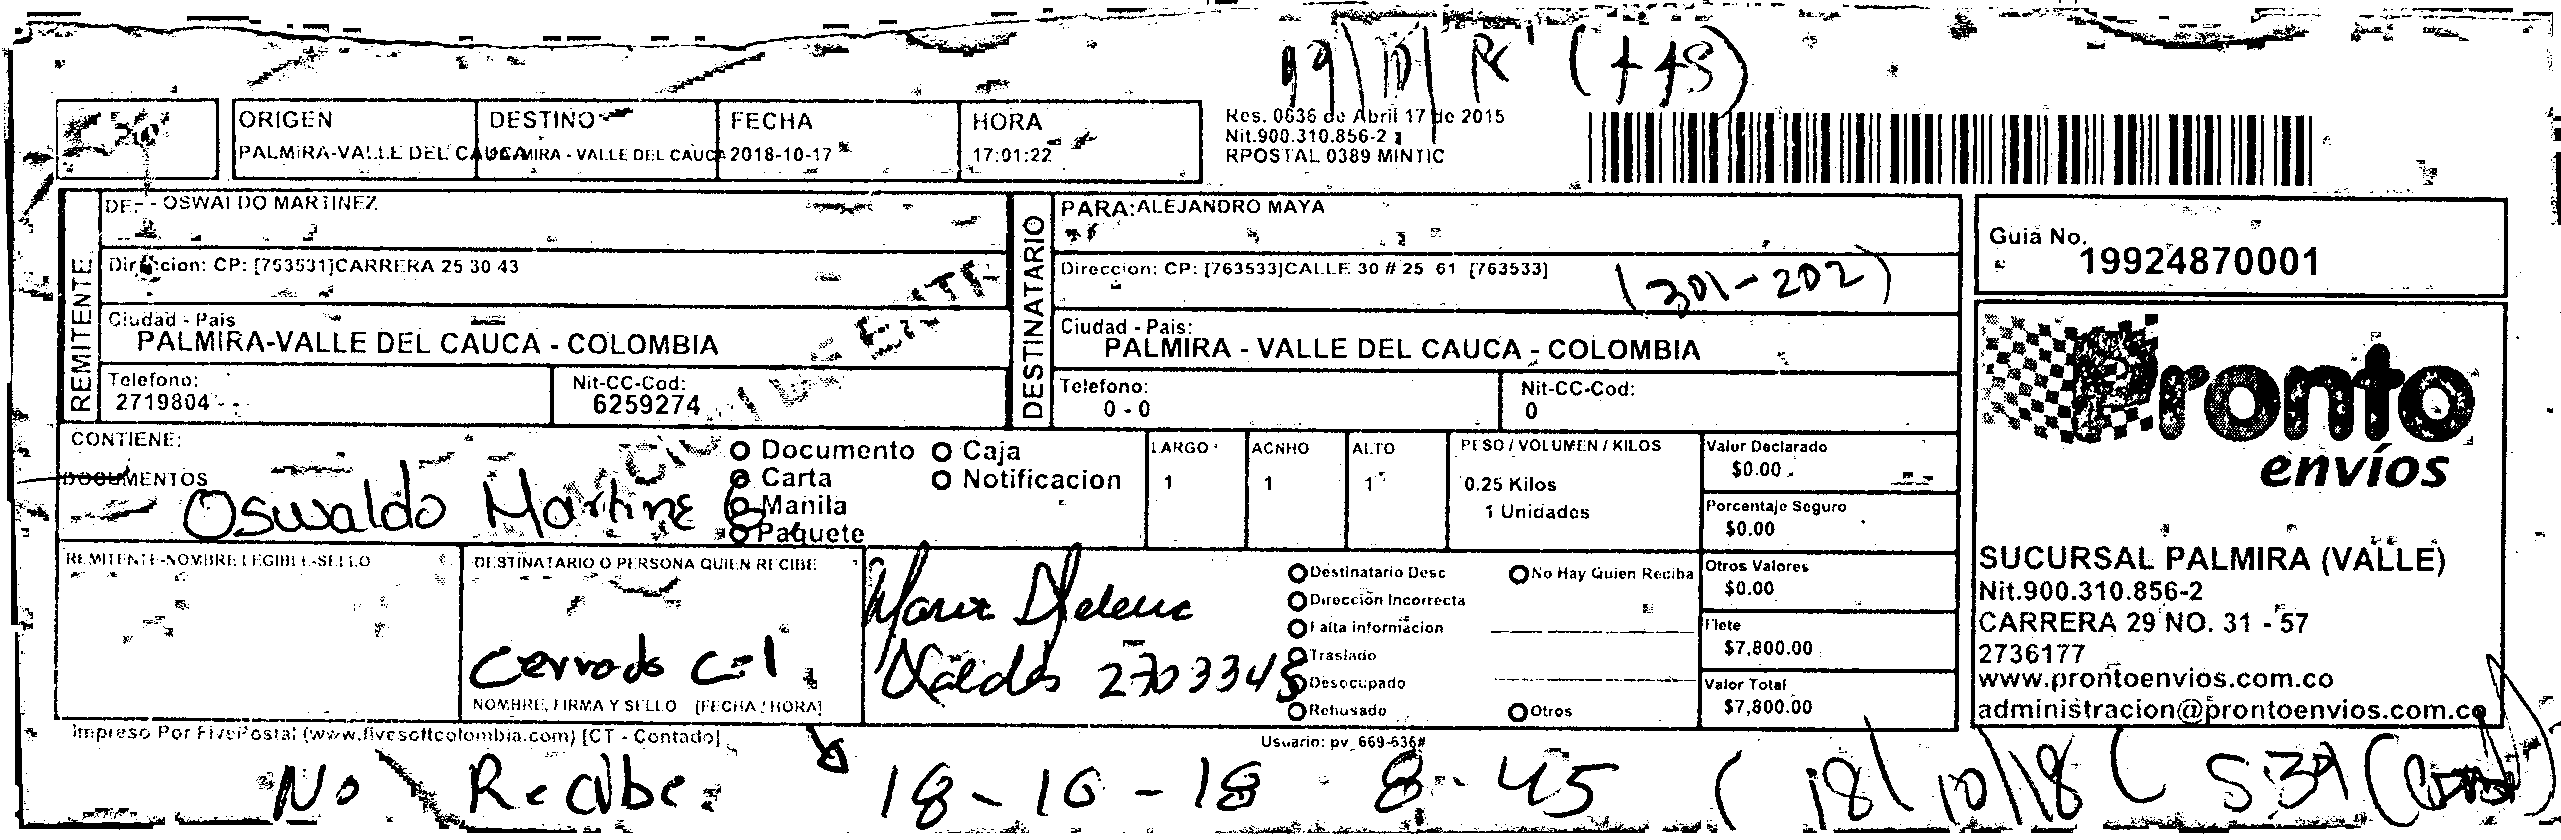 (+45)
ORIGEN
PALMIRA-VALLE DEL CAUCA
DESTINO
PALMIRA - VALLE DEL CAUCA
FECHA
2018-10-17
HORA
17:01:22
Res. 0636 de Abril 17 de 2015
Nit.900.310.856-2
RPOSTAL 0389 MINTIC
REMITENTE
DE: - OSWALDO MARTINEZ
Direccion: CP: [763531]CARRERA 25 30 43
Ciudad - Pais
PALMIRA-VALLE DEL CAUCA - COLOMBIA
Telefono:
2719804 - -
Nit-CC-Cod:
6259274
DESTINATARIO
PARA:ALEJANDRO MAYA
Direccion: CP: [763533]CALLE 30 # 25 61 [763533]
(301-202)
Ciudad - Pais:
PALMIRA - VALLE DEL CAUCA - COLOMBIA
Telefono:
0 - 0
Nit-CC-Cod:
0
Guia No.
19924870001
Pronto
envíos
SUCURSAL PALMIRA (VALLE)
Nit.900.310.856-2
CARRERA 29 NO. 31 - 57
2736177
www.prontoenvios.com.co
administracion@prontoenvios.com.co
CONTIENE:
DOCUMENTOS
Oswaldo Martinez
Documento
Carta
Manila
Paquete
Caja
Notificacion
LARGO
1
ACNHO
1
ALTO
1
PESO / VOLUMEN / KILOS
0.25 Kilos
1 Unidades
Valor Declarado
$0.00
Porcentaje Seguro
$0.00
Otros Valores
$0.00
Flete
$7,800.00
Valor Total
$7,800.00
REMITENTE-NOMBRE LEGIBLE-SELLO
DESTINATARIO O PERSONA QUIEN RECIBE
Cerrado
NOMBRE, FIRMA Y SELLO [FECHA / HORA]
Maria Helena
Valdés 2703345
Destinatario Desc
Dirección Incorrecta
Falta información
Traslado
Desocupado
Rehusado
No Hay Quien Reciba
Otros
Impreso Por FivePostal (www.fivesoftcolombia.com) [CT - Contado]
Usuario: pv_669-636#
No Recibe
18-10-18 8-45
18/10/18